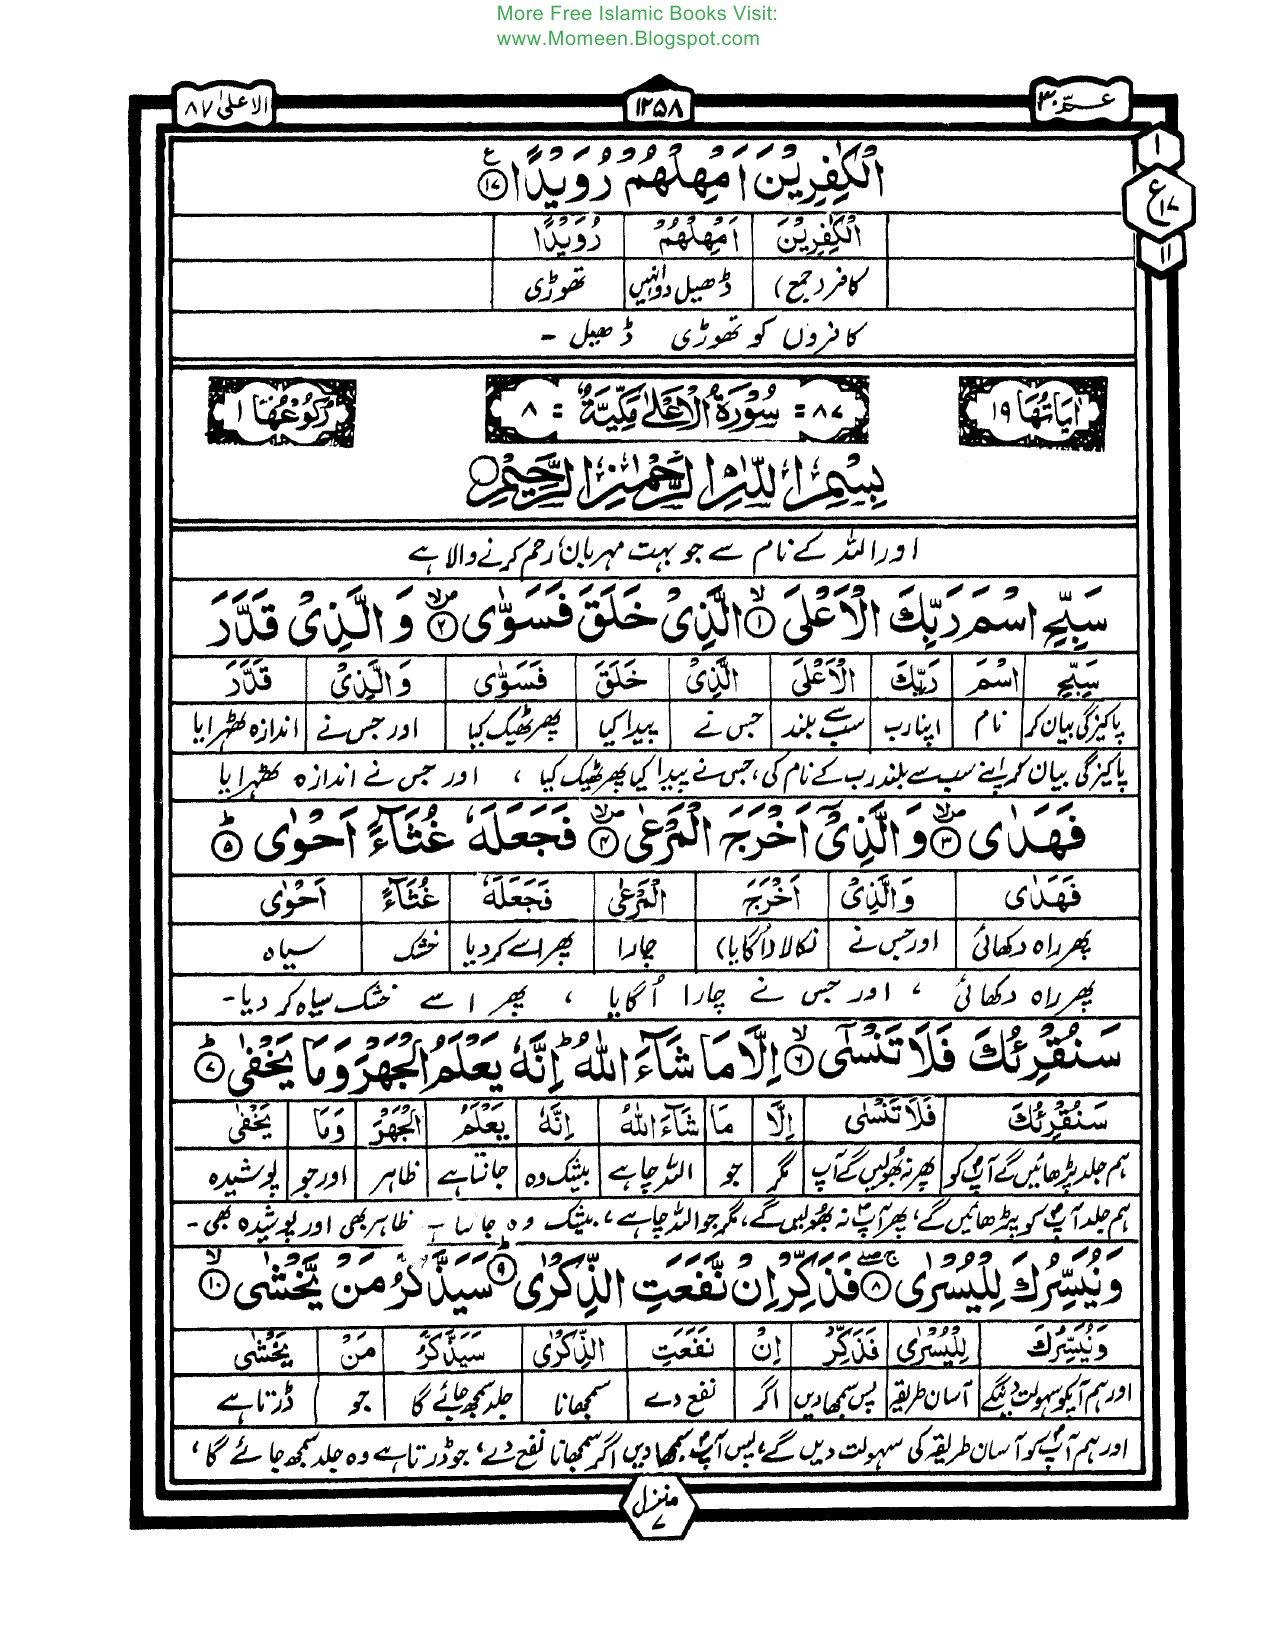 More Free Islamic Books Visit:
www.Momeen.Blogspot.com
عمّ ۳۰
۱۲۵۸
الاعلیٰ ۸۷
۱
ع ۱۷
۱۱
الْكٰفِرِيْنَ اَمْهِلْهُمْ رُوَيْدًا ۝۱۷ ع
الْكٰفِرِيْنَ اَمْهِلْهُمْ رُوَيْدًا
کافر (جمع) ڈھیل دو انہیں تھوڑی
کافروں کو تھوڑی ڈھیل -
اٰيَاتُهَا ۱۹
۸۷ = سُوْرَةُ الْاَعْلٰى مَكِّيَّةٌ = ۸
رُكُوْعُهَا ۱
بِسْمِ اللّٰهِ الرَّحْمٰنِ الرَّحِيْمِ
اور اللہ کے نام سے جو بہت مہربان، رحم کرنے والا ہے
سَبِّحِ اسْمَ رَبِّكَ الْاَعْلَى ۝۱ الَّذِيْ خَلَقَ فَسَوّٰى ۝۲ وَالَّذِيْ قَدَّرَ
سَبِّحِ اسْمَ رَبِّكَ الْاَعْلَى الَّذِيْ خَلَقَ فَسَوّٰى وَالَّذِيْ قَدَّرَ
پاکیزگی بیان کر نام اپنا رب سب سے بلند جس نے پیدا کیا پھر ٹھیک کیا اور جس نے اندازہ ٹھہرایا
پاکیزگی بیان کر اپنے سب سے بلند رب کے نام کی، جس نے پیدا کیا پھر ٹھیک کیا ، اور جس نے اندازہ ٹھہرایا
فَهَدٰى ۝۳ وَالَّذِيْٓ اَخْرَجَ الْمَرْعٰى ۝۴ فَجَعَلَهٗ غُثَآءً اَحْوٰى ۝۵
فَهَدٰى وَالَّذِيْ اَخْرَجَ الْمَرْعٰى فَجَعَلَهٗ غُثَآءً اَحْوٰى
پھر راہ دکھائی اور جس نے نکالا (اگایا) چارا پھر اسے کر دیا خشک سیاہ
پھر راہ دکھائی ، اور جس نے چارا اُگایا ، پھر اسے خشک سیاہ کر دیا-
سَنُقْرِئُكَ فَلَا تَنْسٰٓى ۝۶ اِلَّا مَا شَآءَ اللّٰهُ اِنَّهٗ يَعْلَمُ الْجَهْرَ وَمَا يَخْفٰى ۝۷
سَنُقْرِئُكَ فَلَا تَنْسٰى اِلَّا مَا شَآءَ اللّٰهُ اِنَّهٗ يَعْلَمُ الْجَهْرَ وَمَا يَخْفٰى
ہم جلد پڑھائیں گے آپ کو پھر نہ بھولیں گے آپ مگر جو اللہ چاہے بیشک وہ جانتا ہے ظاہر اور جو پوشیدہ
ہم جلد آپ کو پڑھائیں گے، پھر آپ نہ بھولیں گے، مگر جو اللہ چاہے، بیشک وہ جانتا ہے ظاہر بھی اور پوشیدہ بھی -
وَنُيَسِّرُكَ لِلْيُسْرٰى ۝۸ فَذَكِّرْ اِنْ نَّفَعَتِ الذِّكْرٰى ۝۹ سَيَذَّكَّرُ مَنْ يَّخْشٰى ۝۱۰
وَنُيَسِّرُكَ لِلْيُسْرٰى فَذَكِّرْ اِنْ نَفَعَتِ الذِّكْرٰى سَيَذَّكَّرُ مَنْ يَّخْشٰى
اور ہم آپکو سہولت دینگے آسان طریقہ پس سمجھا دیں اگر نفع دے سمجھانا جلد سمجھ جائے گا جو ڈرتا ہے
اور ہم آپ کو آسان طریقہ کی سہولت دیں گے، پس آپ سمجھا دیں اگر سمجھانا نفع دے، جو ڈرتا ہے وہ جلد سمجھ جائے گا ،
منزل
۷